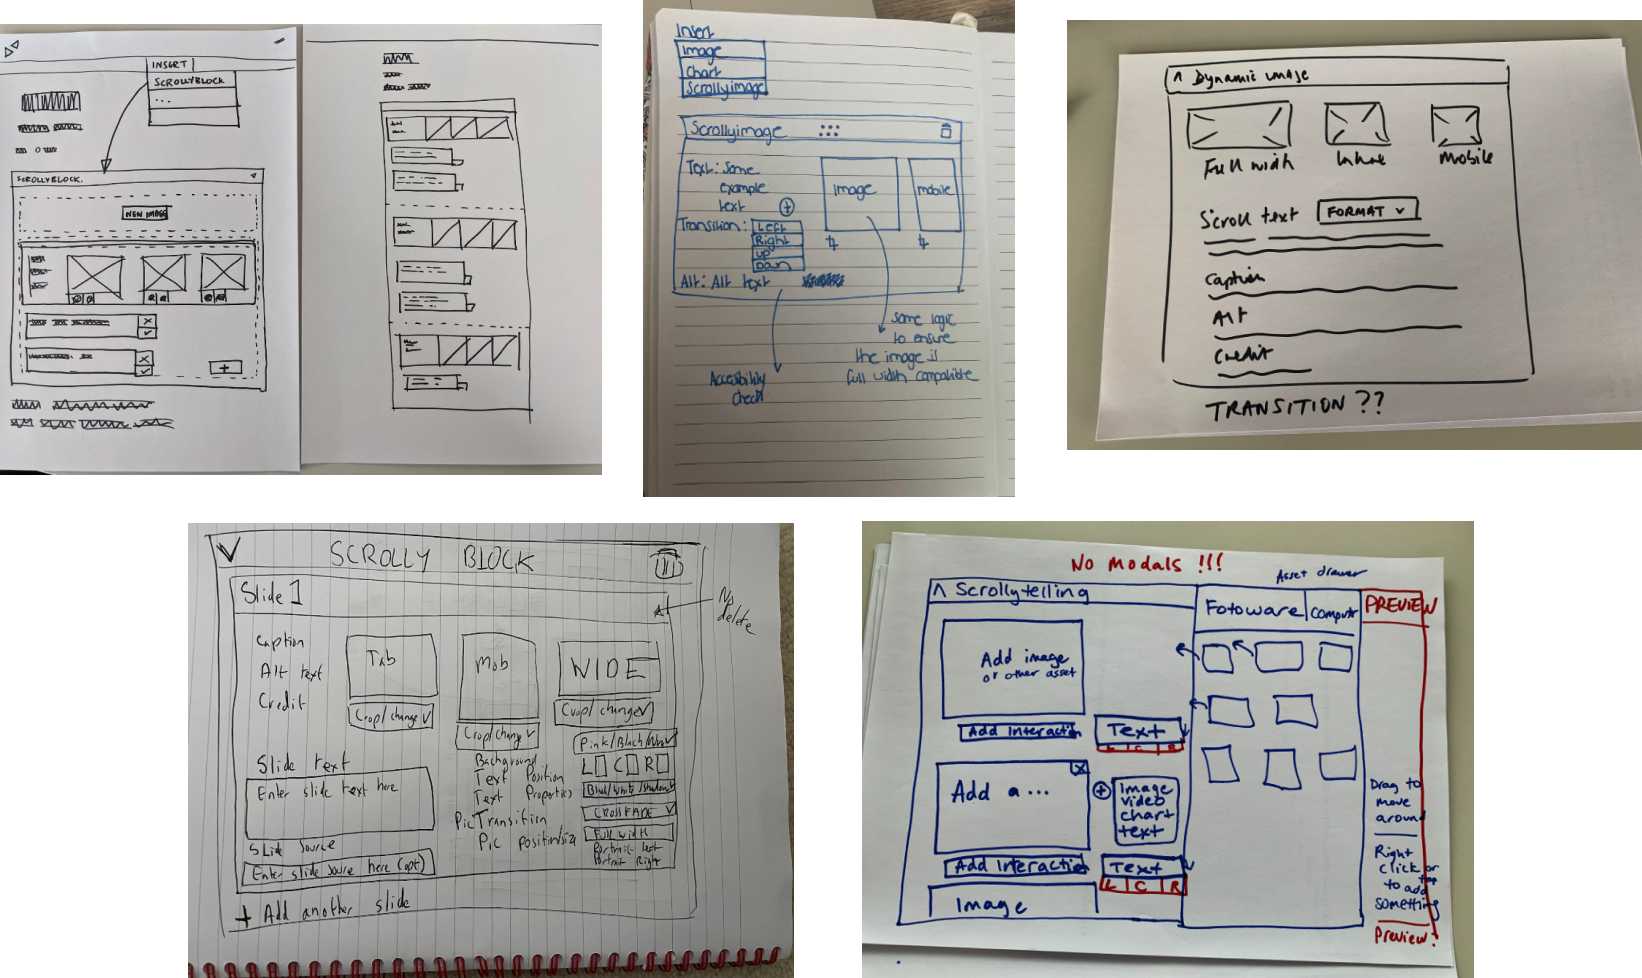 INSERT
SCROLLYBLOCK
...
SCROLLYBLOCK.
NEW IMAGE
+
Insert
Image
Chart
Scrollyimage
Scrollyimage
Text: Some
example
text
+
Image
mobile
Transition:
Left
Right
up
Down
Alt: Alt text
Same logic
to ensure
the image is
full width compatible
Accesibility
check
^ Dynamic image
Full width
Inline
Mobile
Scroll text
FORMAT
Caption
Alt
Credit
TRANSITION ??
SCROLLY BLOCK
Slide 1
No
delete
Caption
Alt text
Credit
Tab
Mob
WIDE
Crop/change
Crop/change
Crop/change
Slide text
Enter slide text here
Slide Source
Enter slide source here (opt)
Background
Text Position
Text Properties
Pic Transition
Pic position/size
Pink/Black/
L C R
CROSSFADE
Full width
Portrait left
Portrait Right
+ Add another slide
No Modals !!!
Asset drawer
^ Scrollytelling
Fotoware
Computr
PREVIEW
Add image
or other asset
Add Interaction
Text
L C R
X
Add a ...
+
Image
video
chart
text
Add Interaction
Text
L C R
Image
Drag to
move
around
Right
click or
tap
to add
something
Preview?